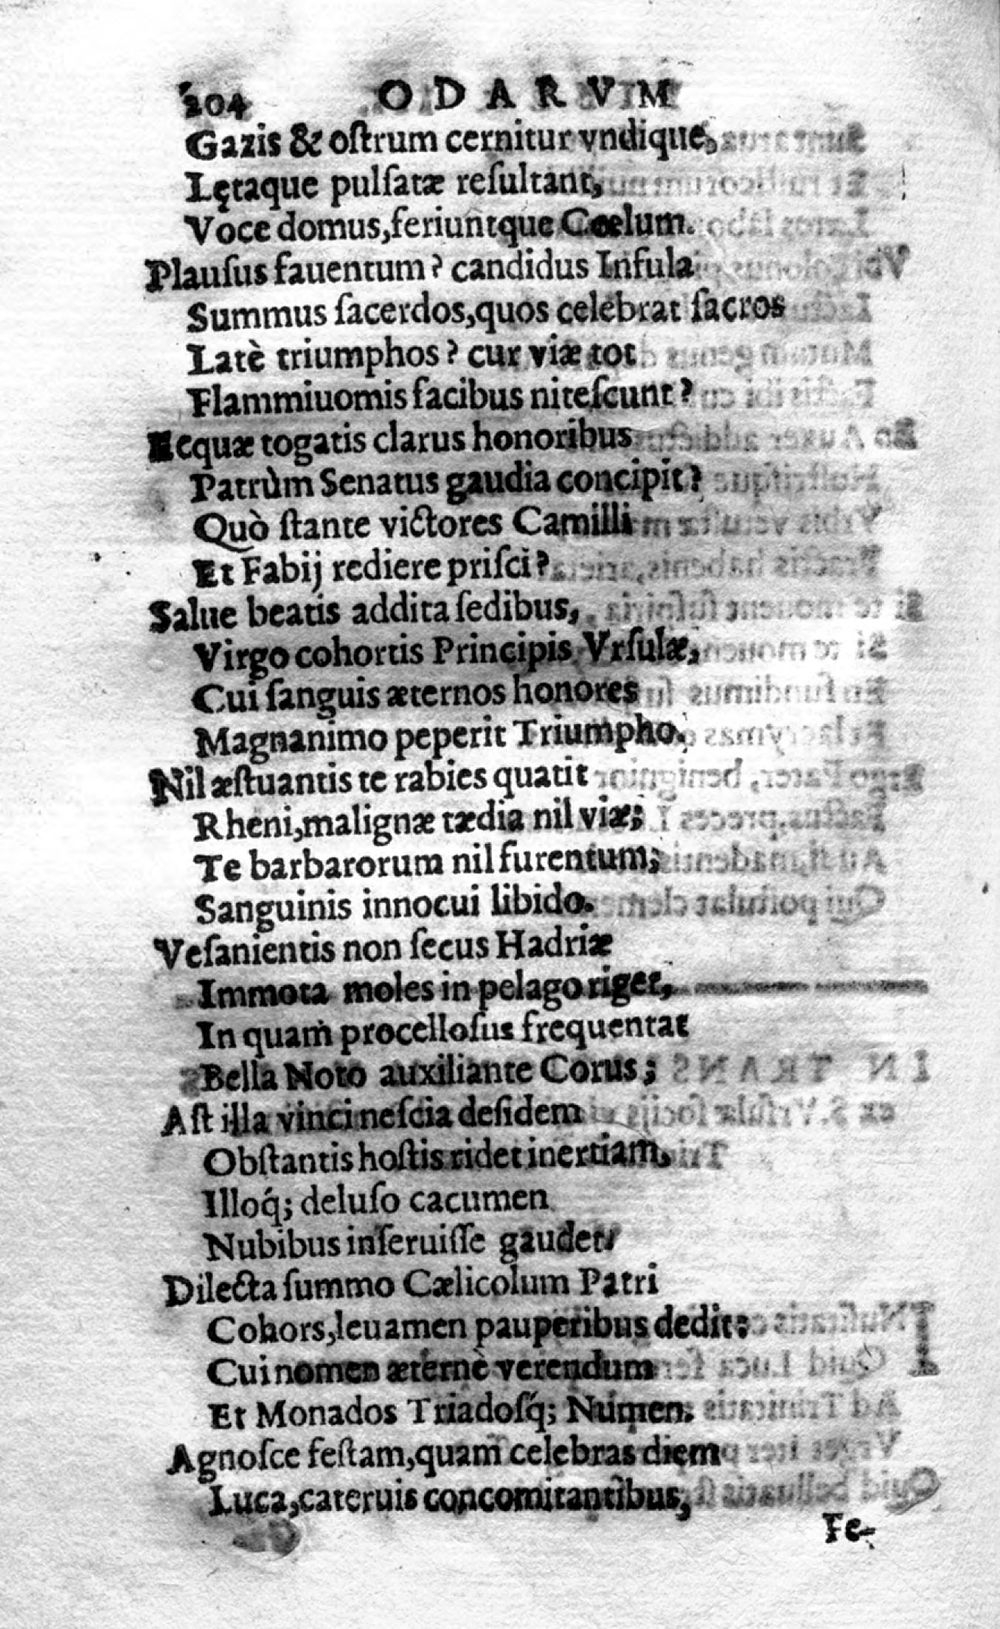 204 ODARVM
Gazis & oſtrum cernitur vndique,
Lętaque pulſatæ reſultant,
Voce domus,feriuntque Cœlum.
Plauſus fauentum? candidus Infula
Summus ſacerdos,quos celebrat ſacros
Latè triumphos? cur viæ tot
Flammiuomis facibus niteſcunt?
Ecquæ togatis clarus honoribus
Patrùm Senatus gaudia concipit?
Quò ſtante victores Camilli
Et Fabij rediere priſci?
Salue beatis addita ſedibus,
Virgo cohortis Principis Vrſulæ,
Cui ſanguis æternos honores
Magnanimo peperit Triumpho.
Nil æſtuantis te rabies quatit
Rheni,malignæ tædia nil viæ;
Te barbarorum nil furentum;
Sanguinis innocui libido.
Veſanientis non ſecus Hadriæ
Immota moles in pelago riget,
In quam procelloſus frequentat
Bella Noto auxiliante Corus;
Aſt illa vinci neſcia deſidem
Obſtantis hoſtis ridet inertiam,
Illoq́; deluſo cacumen
Nubibus inſeruiſſe gaudet.
Dilecta ſummo Cælicolum Patri
Cohors,leuamen pauperibus dedit:
Cui nomen æternè verendum
Et Monados Triadoſq́; Numen.
Agnoſce feſtam,quam celebras diem
Luca,cateruis concomitantibus,
Fe-